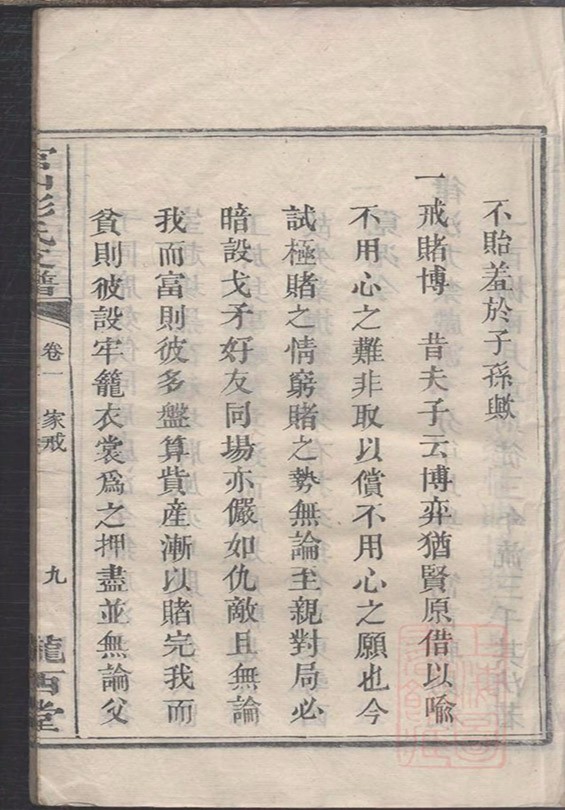 不貽羞於子孫歟
一戒賭博 昔夫子云博弈猶賢原借以喩
不用心之難非取以償不用心之願也今
試極賭之情窮賭之勢無論至親對局必
暗設戈矛好友同場亦儼如仇敵且無論
我而富則彼多盤算貲産漸以賭完我而
貧則彼設牢籠衣裳爲之押盡並無論父
氏支譜
卷一 家戒
九
隴西堂